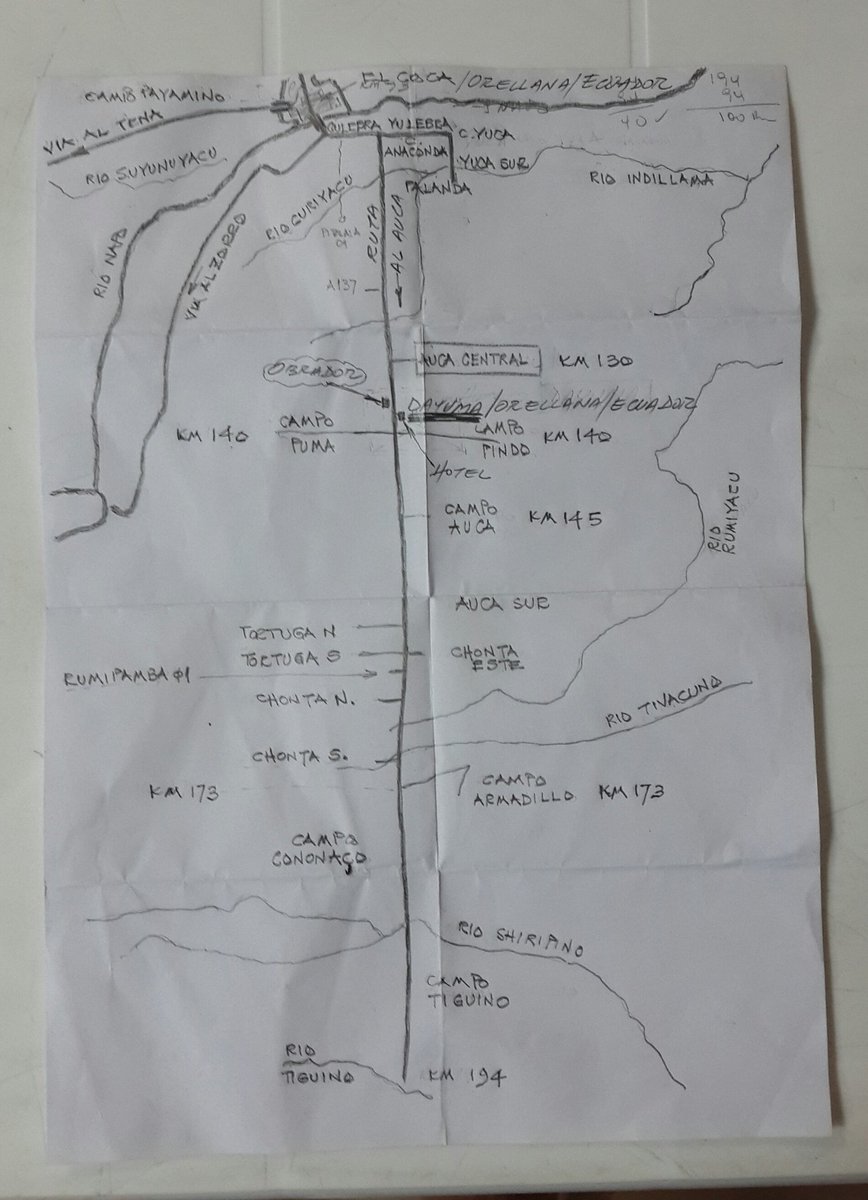 EL COCA/ORELLANA/ECUADOR
194
94
100 Km
40 ✓
CAMPO PAYAMINO
VIA AL TENA
RIO SUYUNUYACU
CULEBRA YULEBRA
C. YUCA
C.
ANACONDA
YUCA SUR
PALANDA
RIO INDILLAMA
RIO NAPO
VIA AL ZORRO
RIO CURIYACU
RUTA
AL AUCA
A137
AUCA CENTRAL
KM 130
OBRADOR
DAYUMA/ORELLANA/ECUADOR
KM 140
CAMPO
PUMA
CAMPO
PINDO
KM 140
HOTEL
CAMPO
AUCA
KM 145
RIO
RUMIYACU
AUCA SUR
TORTUGA N
TORTUGA S
CHONTA
ESTE
RUMIPAMBA 01
CHONTA N.
RIO TIVACUNO
CHONTA S.
KM 173
CAMPO
ARMADILLO
KM 173
CAMPO
CONONACO
RIO SHIRIPINO
CAMPO
TIGUINO
RIO
TIGUINO
KM 194